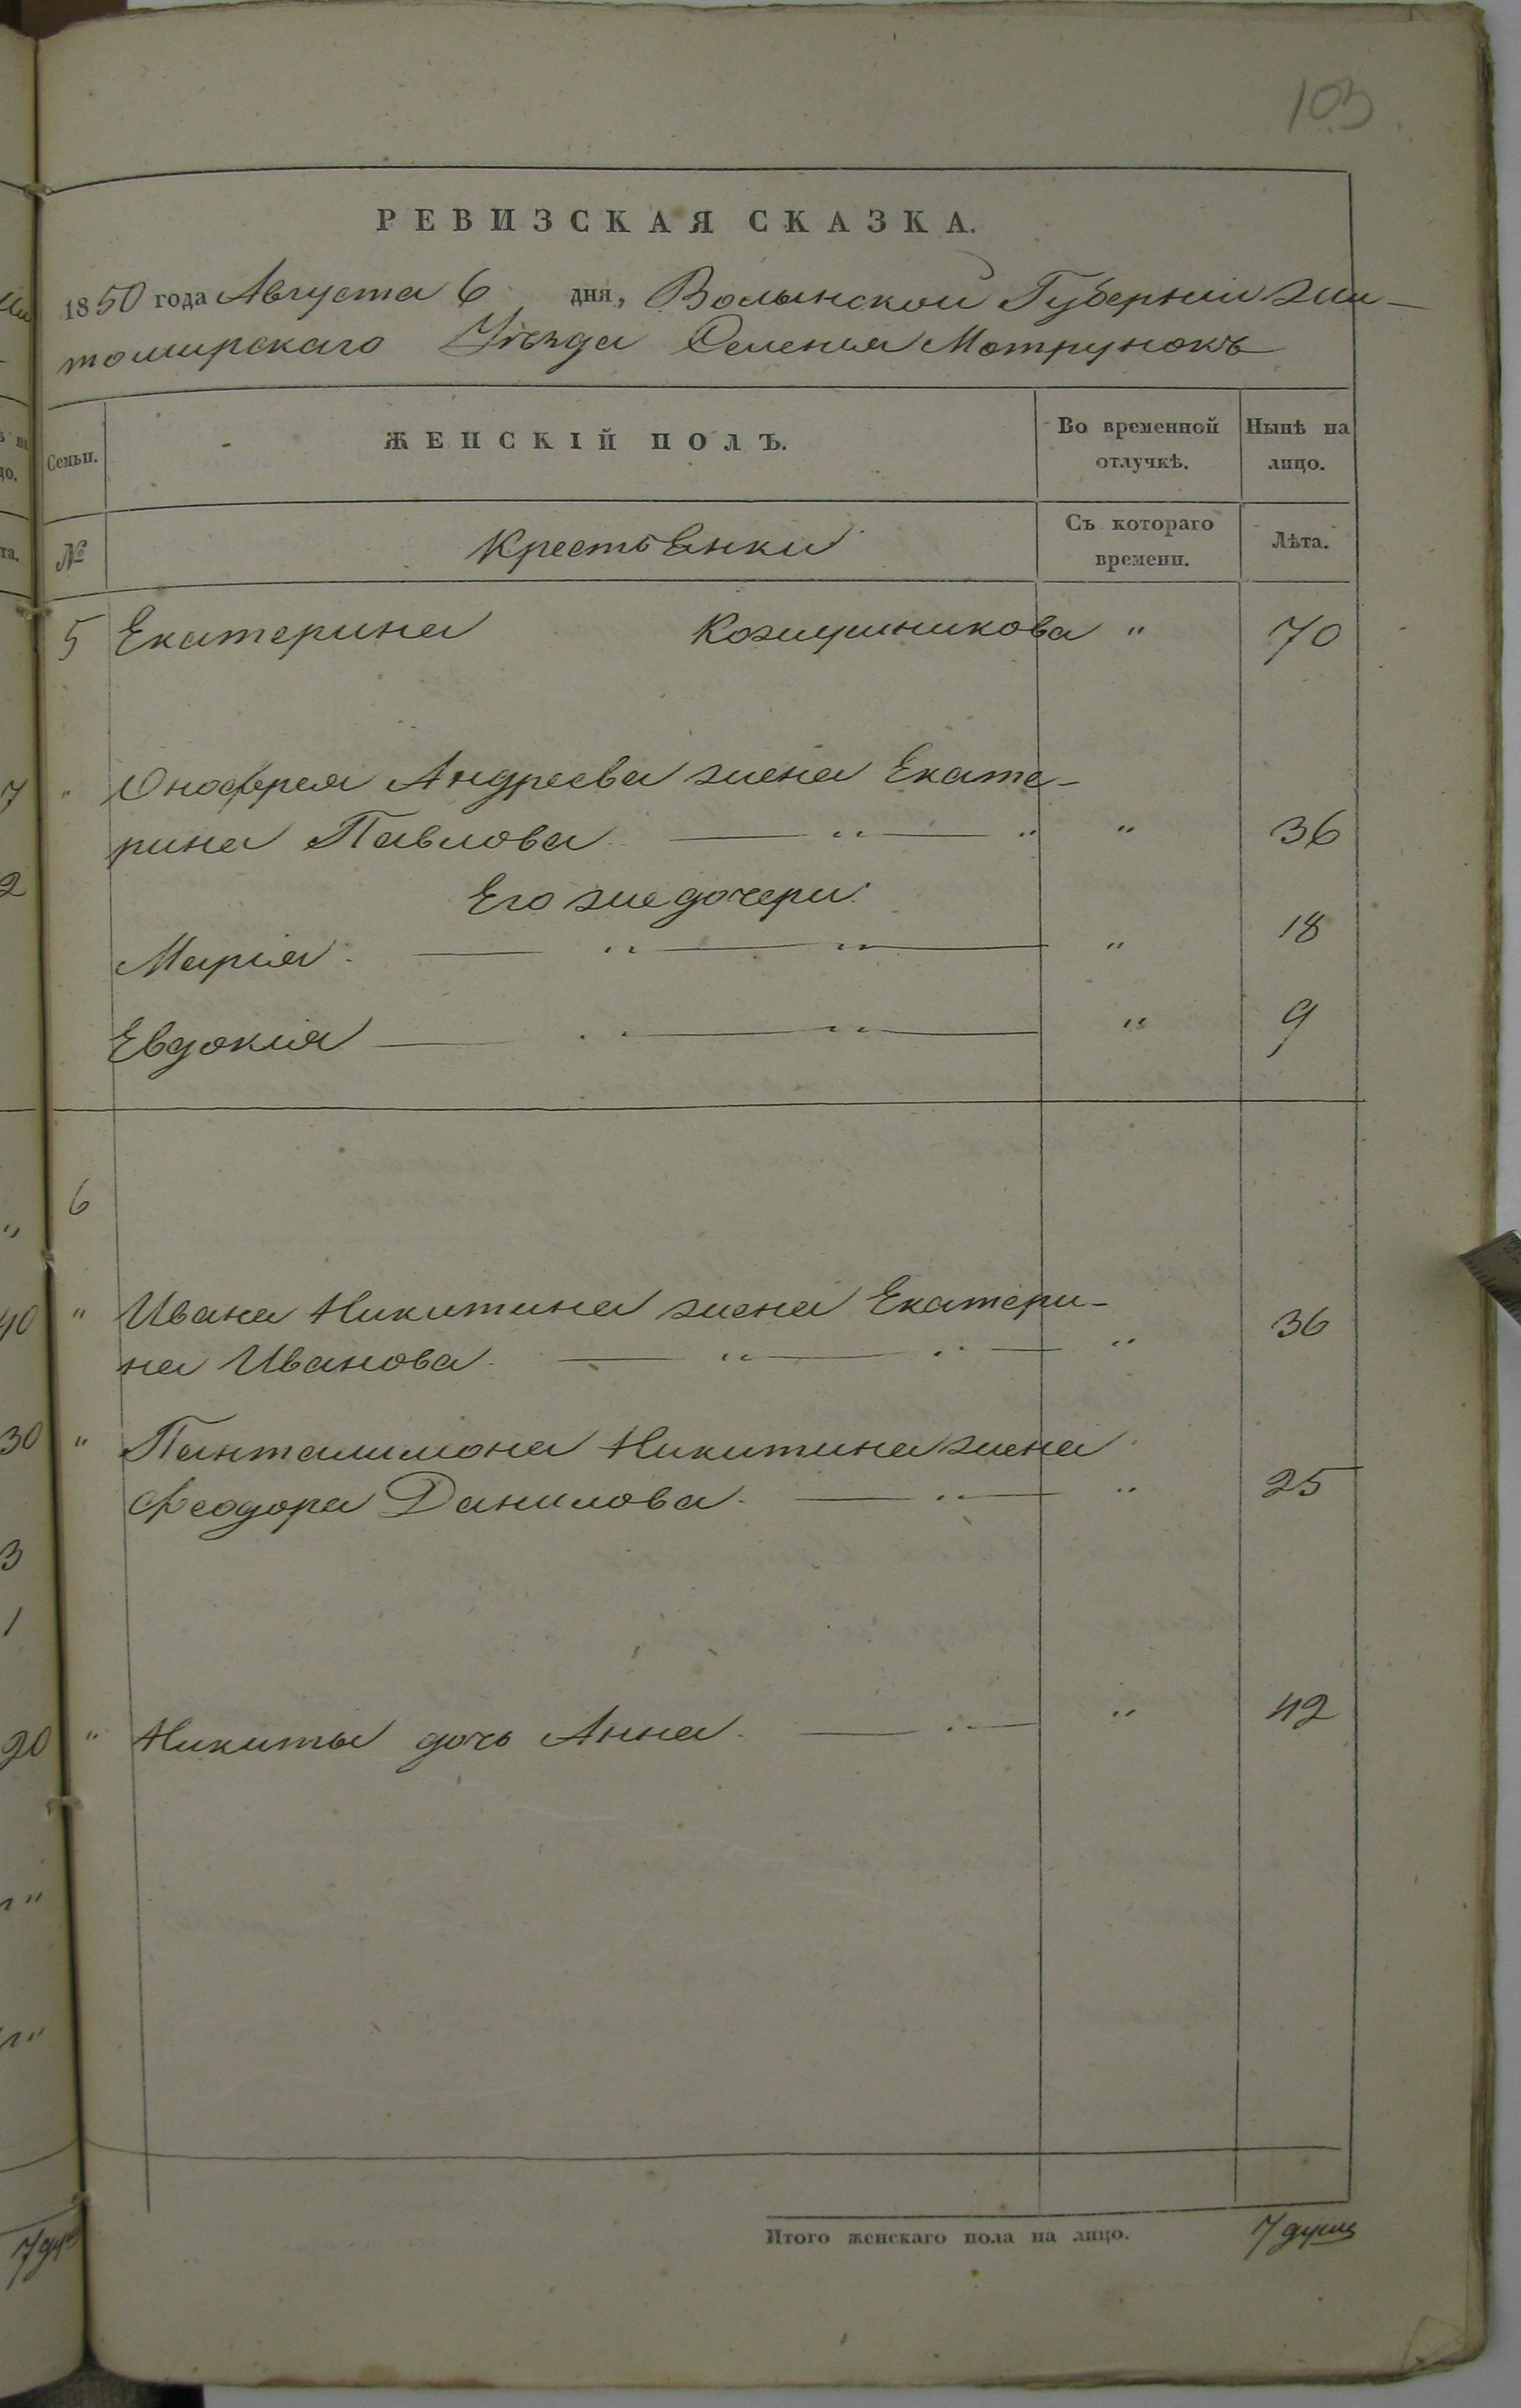 103
РЕВИЗСКАЯ СКАЗКА.
1850 года Августа 6 дня, Волынской Губерніи Жи-
томирскаго Уѣзда Селенья Мотрунокъ
Семьи.
ЖЕНСКІЙ ПОЛЪ.
Во временной отлучкѣ.
Нынѣ на лицо.
№
Крестьянки
Съ котораго времени.
Лѣта.
5 Екатерина Кожушникова " 70
" Оноферея Андреева жена Екате-
рина Павлова " " " 36
Его же дочери
Марія " " " 18
Евдокія " " " 9
6
" Ивана Никитина жена Екатери-
на Иванова " " " 36
" Панталимона Никитина жена
Феодора Данилова " " 25
" Никиты дочь Анна " " 42
Итого женскаго пола на лицо. 7 душъ